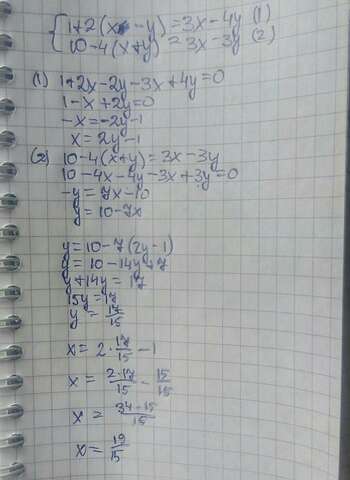 { 1+2(x-y)=3x-4y (1)
10-4(x+y)=3x-3y (2)
(1) 1+2x-2y-3x+4y=0
1-x+2y=0
-x=-2y-1
x=2y-1
(2) 10-4(x+y)=3x-3y
10-4x-4y-3x+3y=0
-y=7x-10
y=10-7x
y=10-7(2y-1)
y=10-14y+7
y+14y=17
15y=17
y=17/15
x=2·17/15-1
x=2·17/15-15/15
x=34-15/15
x=19/15